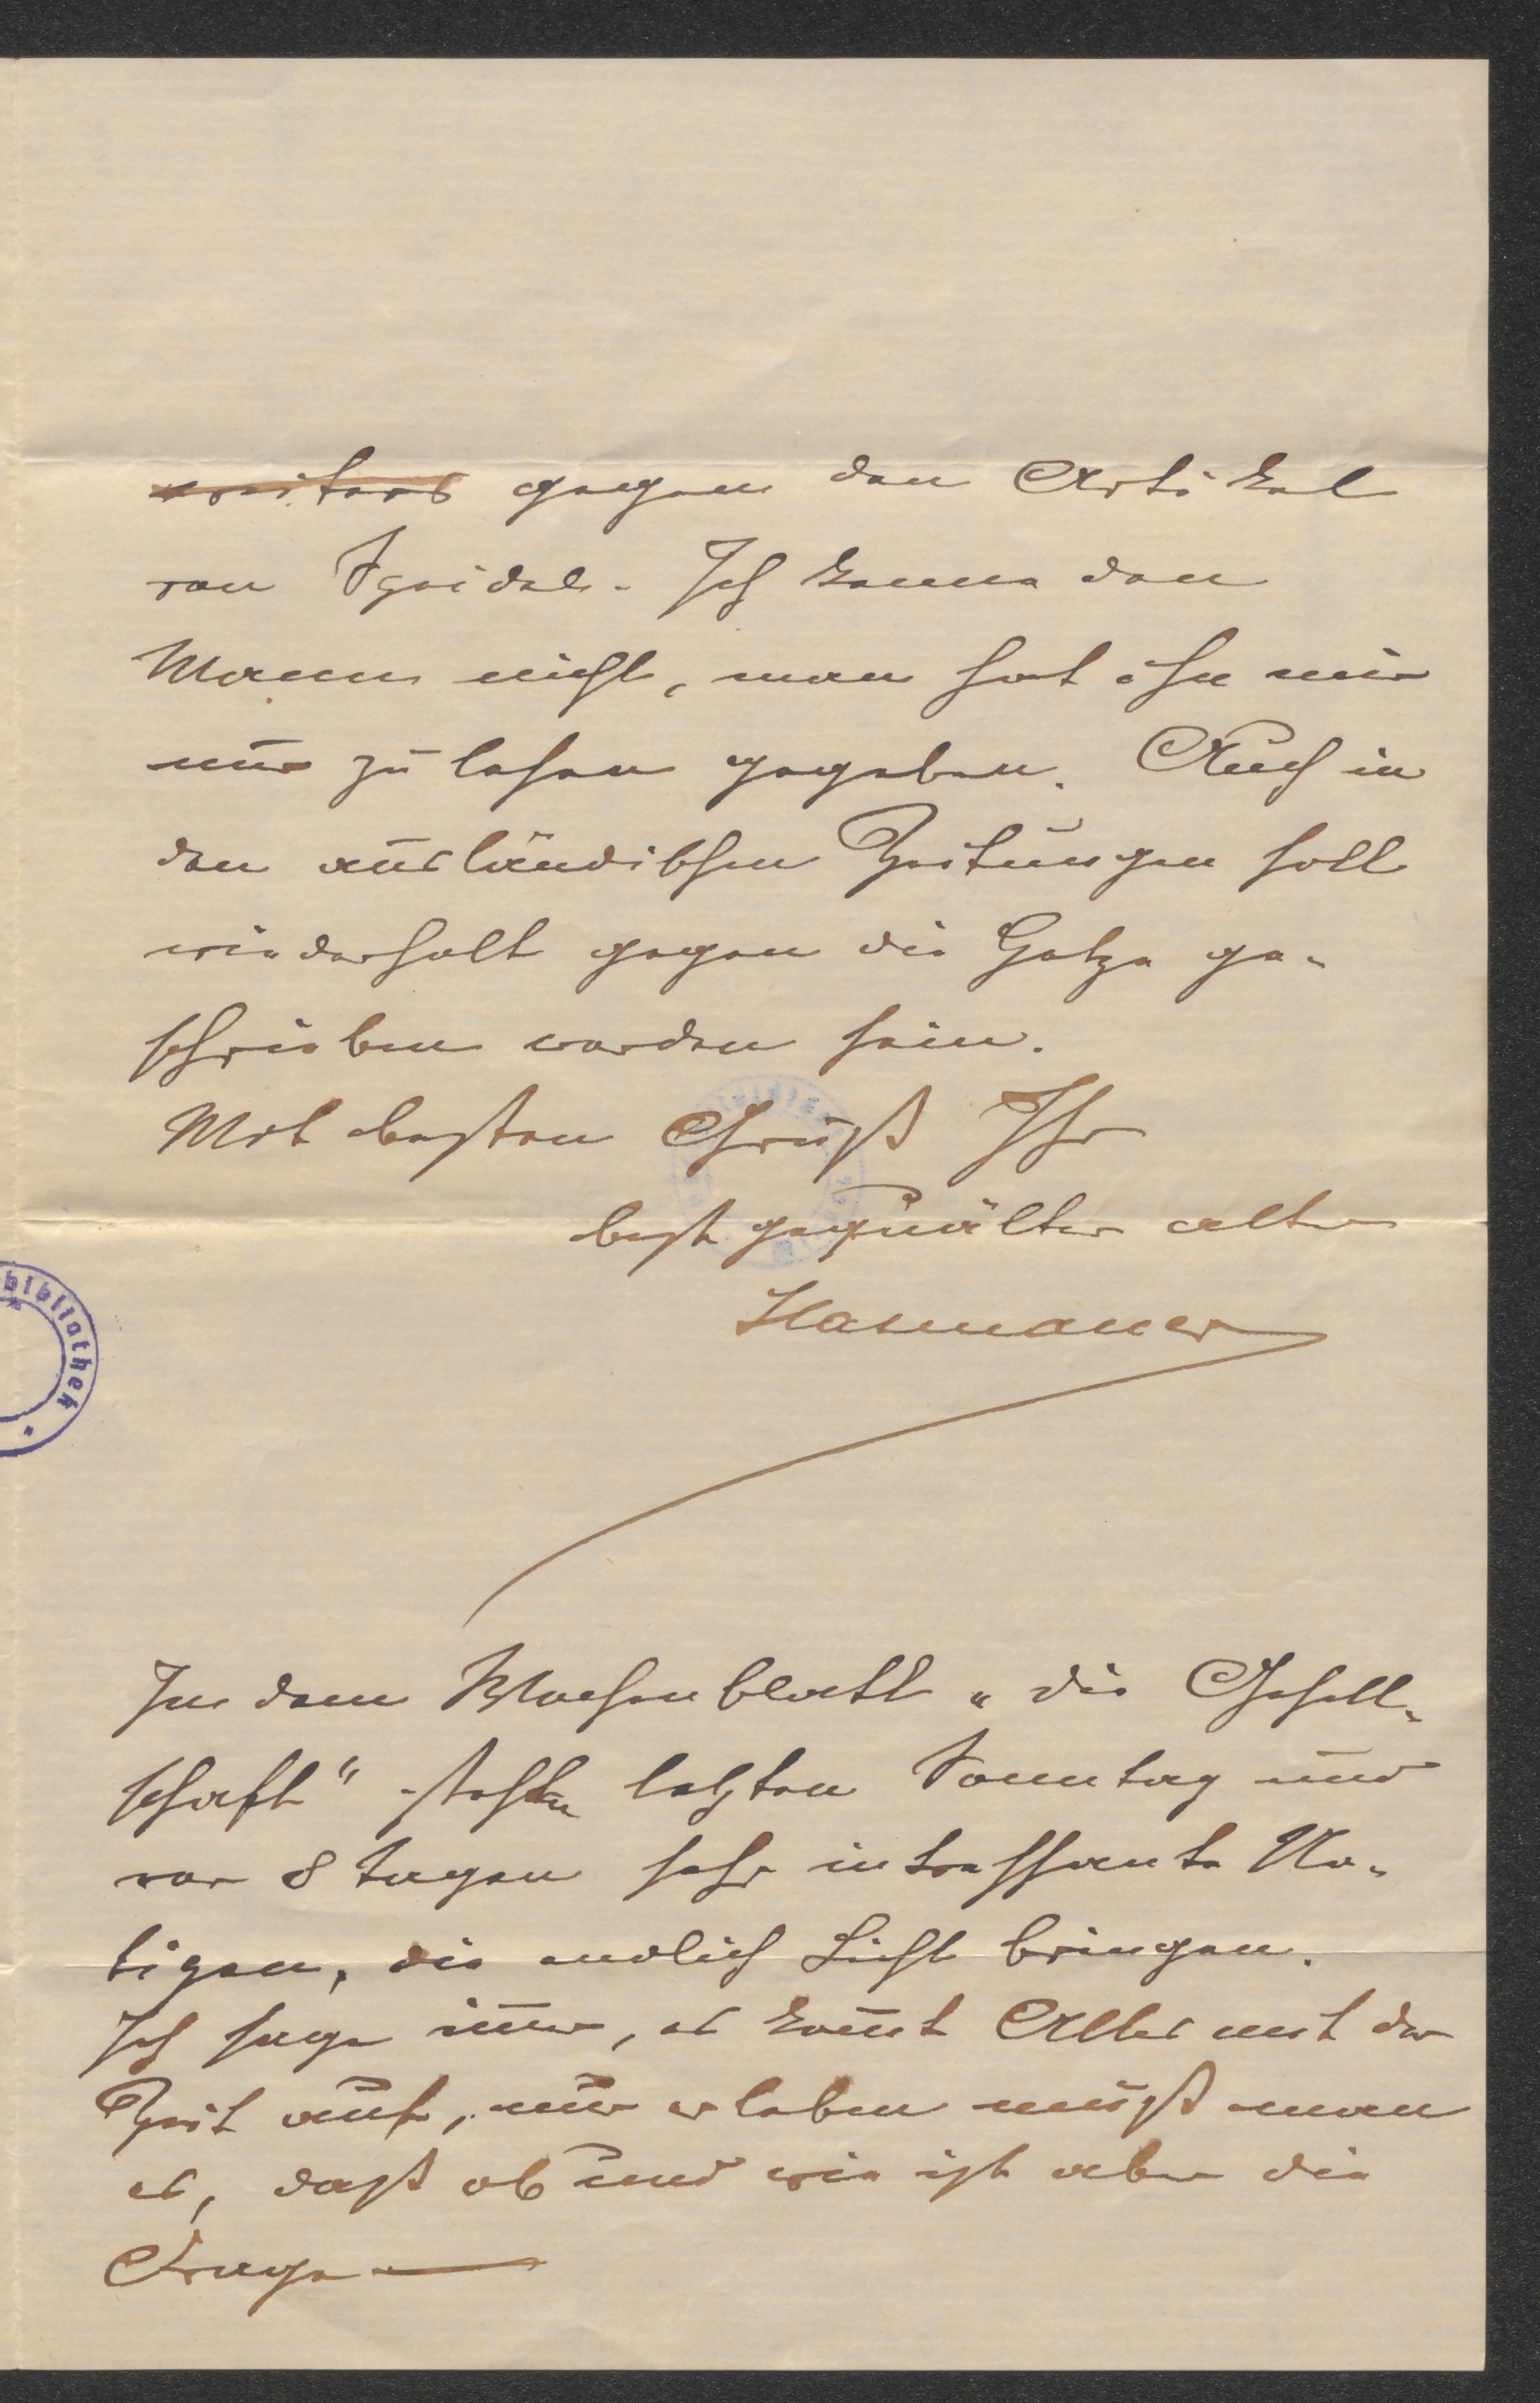 weiters gegen den Artikel
von Speidel. Ich kenne den
Mann nicht, man hat ihn mir
nur zu lesen gegeben. Auch in
den ausländischen Zeitungen soll
wiederholt gegen die Hetze ge-
schrieben worden sein.
Mit bestem Gruß Ihr
best gequälter alter
Hasenauer
bibliothek
In dem Wochenblatt „die Gesell-
schaft" stehen letzten Sonntag und
vor 8 Tagen sehr intressante No-
tizen, die endlich Licht bringen.
Ich sage im̄er, es kom̄t Alles mit der
Zeit auf, nur erleben muß man
es, daß ob und wie ist aber die
Frage —